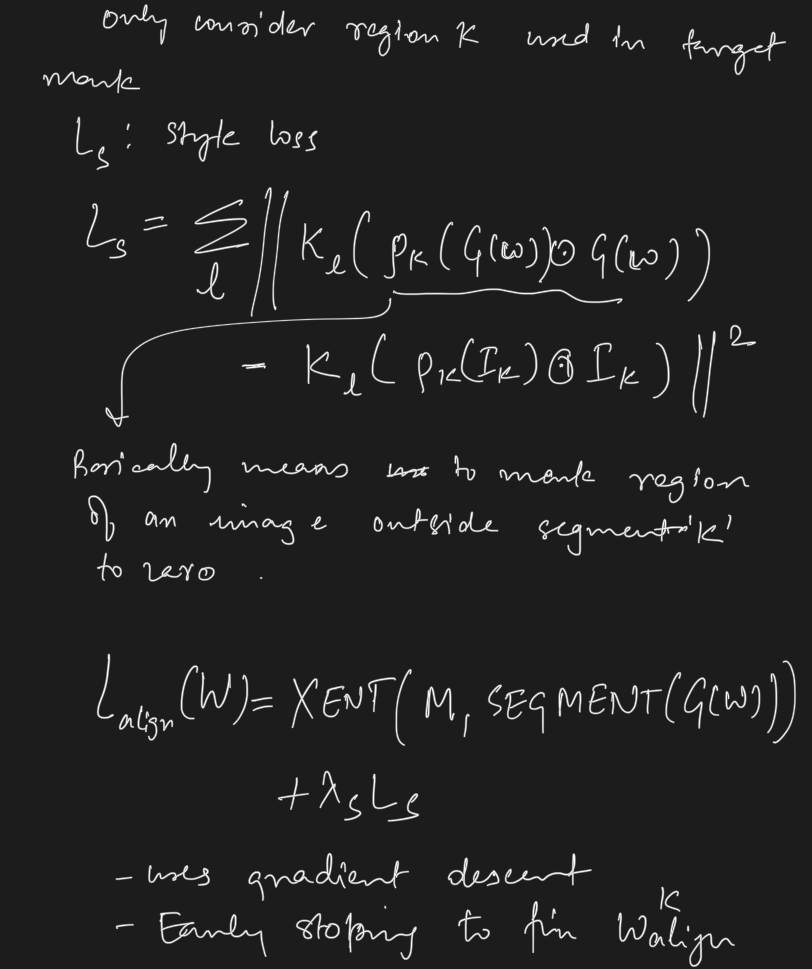 only consider region K used in target
mask
L_s : style loss
L_s = Σ_l || K_l ( ρ_K ( G(w)) ⊙ G(w) )
- K_l ( ρ_K(I_K) ⊙ I_K ) ||^2
Basically means to mask region
of an image outside segment 'K'
to zero .
L_align (W) = XENT( M, SEGMENT(G(W)))
+ λ_s L_s
- uses gradient descent
- Early stoping to fin W_align^K